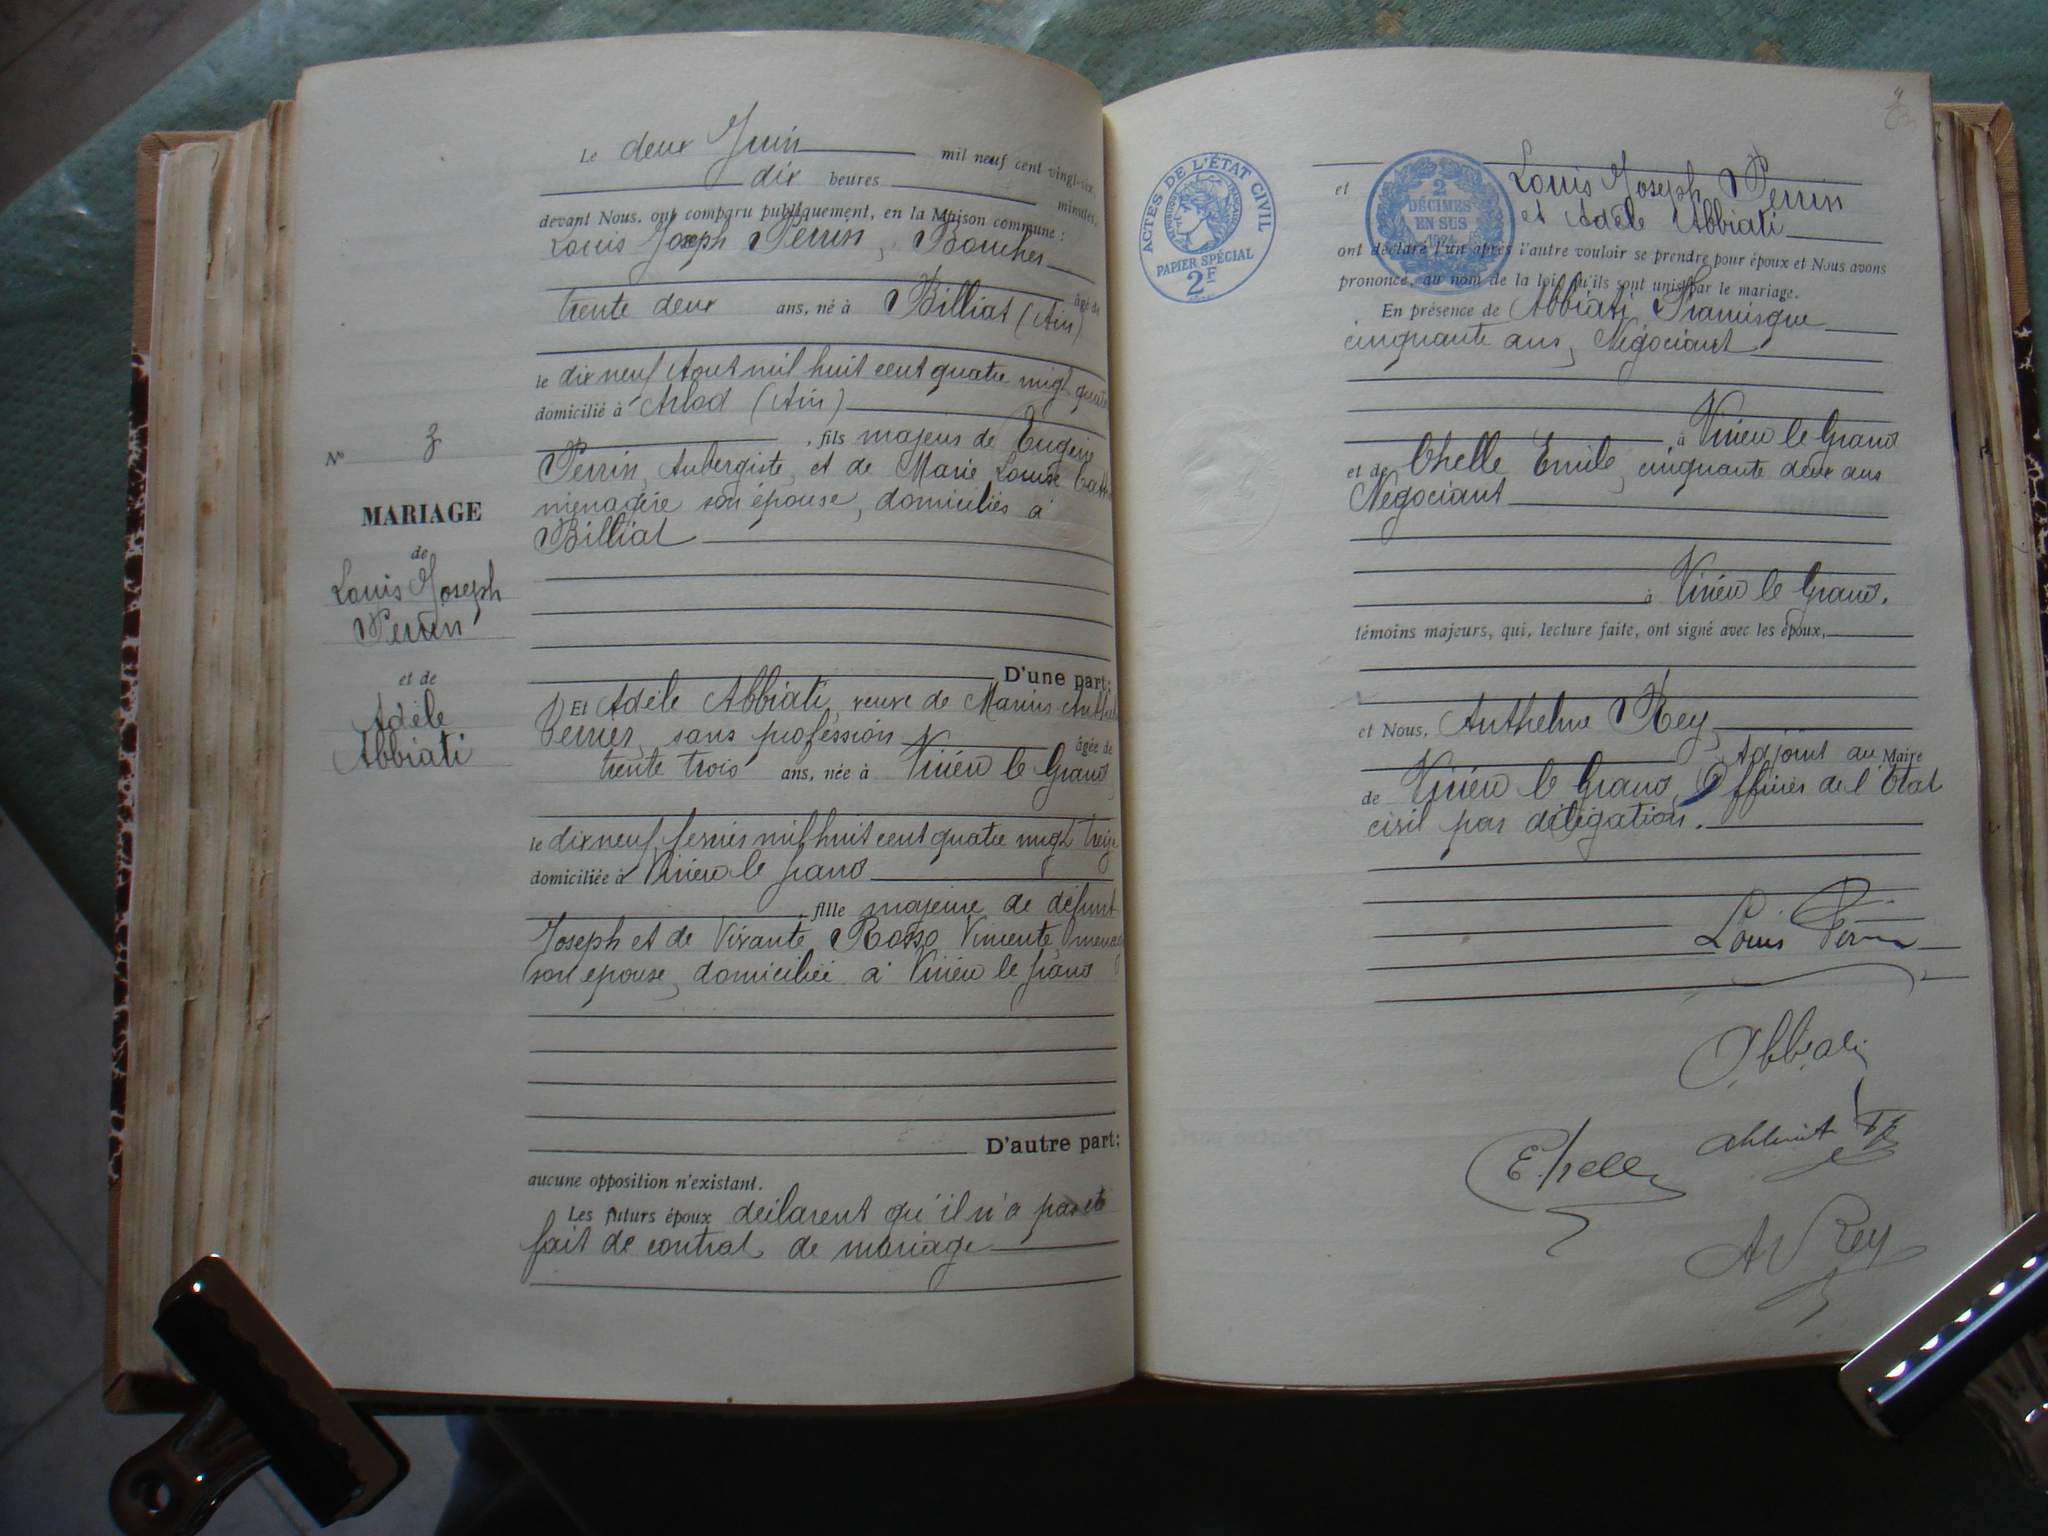 Le deux Juin mil neuf cent vingt-six,
dix heures minutes,
devant Nous, ont comparu publiquement, en la Maison commune :
Louis Joseph Perrin, Boucher
âgé de
trente deux ans, né à Billiat (Ain)
le dix neuf Aout mil huit cent quatre vingt quatre
domicilié à Arlod (Ain)
, fils majeur de Eugène
Perrin, Aubergiste, et de Marie Louise
ménagère son épouse, domiciliés à
Billiat
D'une part:
Et Adèle Abbiati, veuve de Marius
Perrier, sans profession âgée de
trente trois ans, née à Virieu le Grand
le dix neuf fevrier mil huit cent quatre vingt treize
domiciliée à Virieu le grand
, fille majeure de défunt
Joseph et de Vivante Rosso Vincente
son épouse, domiciliée à Virieu le grand
D'autre part:
aucune opposition n'existant.
Les futurs époux déclarent qu'il n'a pas été
fait de contrat de mariage
No 3
MARIAGE
de
Louis Joseph
Perrin
et de
Adèle
Abbiati
ACTES DE L'ÉTAT CIVIL
PAPIER SPÉCIAL
2F
2
DÉCIMES
EN SUS
1924
et Louis Joseph Perrin
et Adèle Abbiati
ont déclaré l'un après l'autre vouloir se prendre pour époux et Nous avons
prononcé, au nom de la loi, qu'ils sont unis par le mariage.
En présence de Abbiati Francisque
cinquante ans, Négociant
, à Virieu le Grand
et de Chelle Emile, cinquante deux ans
Négociant
à Virieu le Grand.
témoins majeurs, qui, lecture faite, ont signé avec les époux,
et Nous, Anthelme Rey,
Adjoint au Maire
de Virieu le Grand, Officier de l'Etat
civil par délégation.
Louis Perrin
Abbiati
E. Chelle
A Rey